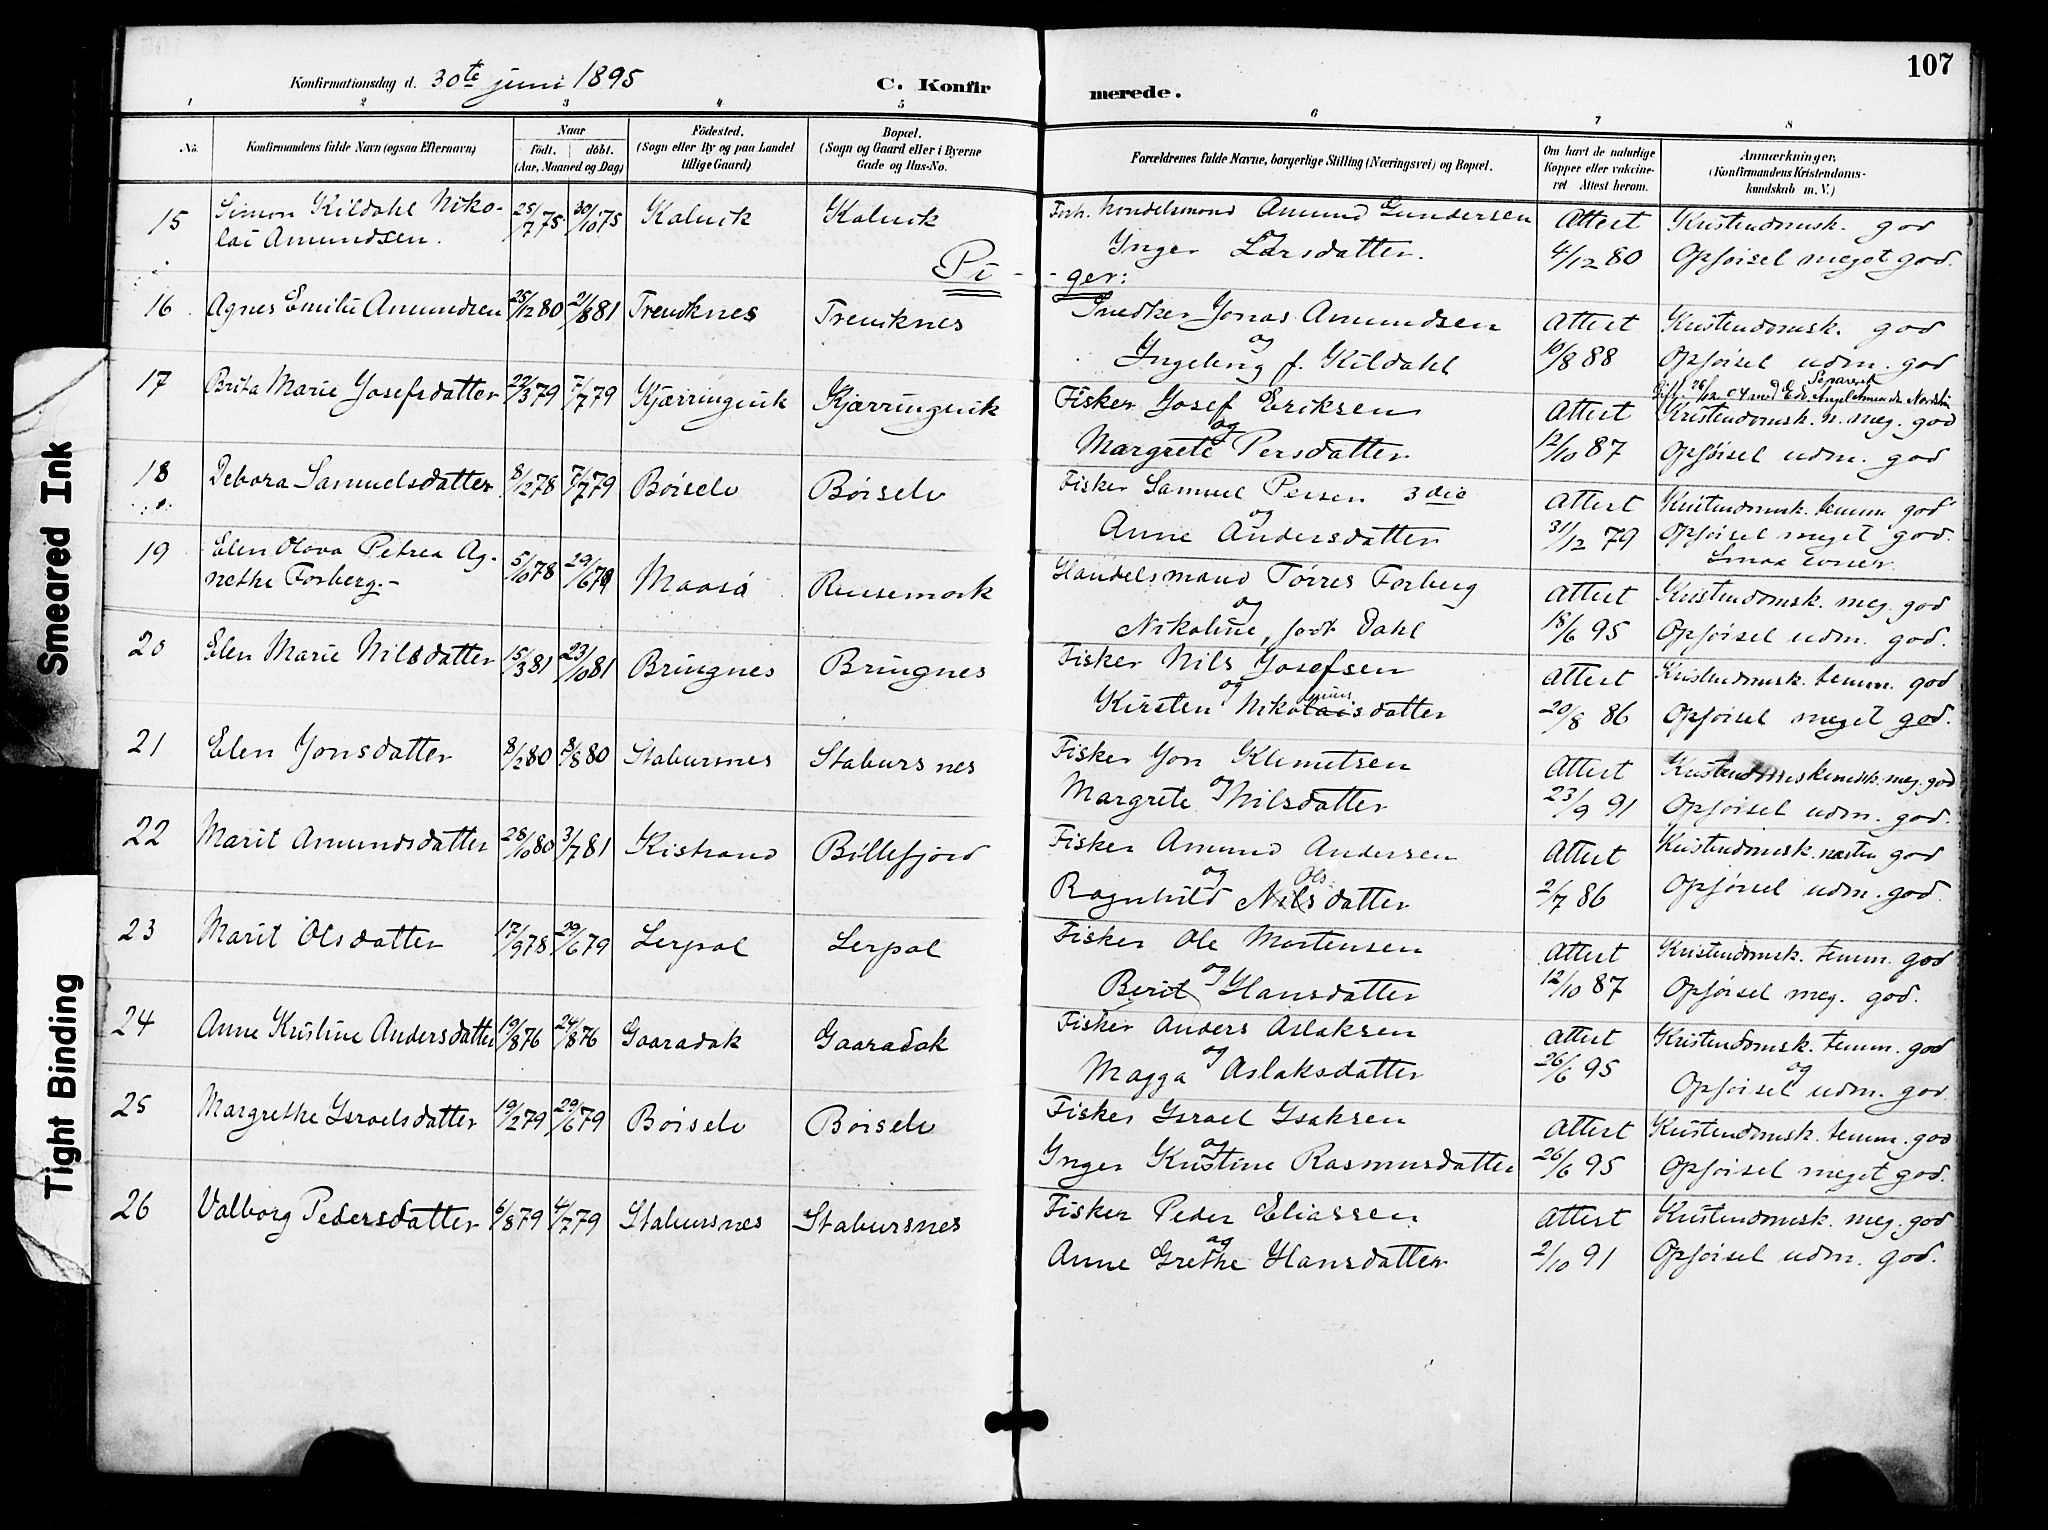 107
Konfirmationsdag d. 30te juni 1895 C. Konfirmerede.
1 2 3 4 5 6 7 8
No. Konfirmandens fulde Navn (ogsaa Efternavn) Naar født. døbt. (Aar, Maaned og Dag) Fødested. (Sogn eller By og paa Landet tillige Gaard) Bopæl. (Sogn og Gaard eller i Byerne Gade og Hus-No. Forældrenes fulde Navne, borgerlige Stilling (Næringsvei) og Bopæl. Om havt de naturlige Kopper eller vakcineret Attest herom. Anmærkninger. (Konfirmandens Kristendomskundskab m. V.)
15 Simon Kildahl Niko- 25/7 75 30/10 75 Kalvik Kalvik Forh. handelsmand Amund Gundersen Attest Kristendomsk. god
lai Amundsen. og Inger Larsdatter. 4/12 80 Opførsel meget god.
Pi- -ger:
16 Agnes Emilie Amundsen 25/12 80 21/8 81 Treviknes Treviknes Snedker Jonas Amundsen Attest Kristendomsk. god
og Ingeborg f. Kildahl 10/8 88 Opførsel udm. god
17 Brita Marie Josefsdatter 22/3 79 7/7 79 Kjærringvik Kjærringvik Fisker Josef Eriksen Attest Kristendomsk. n. meg. god
og Margrete Persdatter 12/10 87 Opførsel udm. god
18 Debora Samuelsdatter 8/12 78 7/7 79 Børselv Børselv Fisker Samuel Persen 3die Attest Kristendomsk. temm god
og Anne Andersdatter 31/12 79 Opførsel meget god.
Smaa evner.
19 Elen Olova Petrea Ag- 5/10 78 29/6 79 Maasø Russemark Handelsmand Tørres Forberg Attest Kristendomsk. meg. god
nethe Forberg.- og Nikoline, født Dahl 18/6 95 Opførsel udm. god.
20 Elen Marie Nilsdatter 15/3 81 23/10 81 Bringnes Bringnes Fisker Nils Josefsen Attest Kristendomsk. temm. god
Kirsten og Nikolaisdatter 20/8 86 Opførsel meget god.
21 Elen Jonsdatter 8/2 80 8/8 80 Stabursnes Stabursnes Fisker Jon Klemetsen Attest Kristendomskundsk. meg. god
Margrete og Nilsdatter 23/9 91 Opførsel udm. god.
22 Marit Amundsdatter 28/10 80 3/7 81 Kistrand Billefjord Fisker Amund Andersen Attest Kristendomsk. næsten god
og Ols
Ragnhild Nilsdatter 2/7 86 Opførsel udm. god.
23 Marit Olsdatter 17/9 78 29/6 79 Lerpol Lerpol Fisker Ole Mortensen Attest Kristendomsk. temm. god
Berit og Hansdatter 12/10 87 Opførsel meg. god.
24 Anne Kristine Andersdatter 19/8 76 24/8 76 Gaaradak Gaaradak Fisker Anders Aslaksen Attest Kristendomsk. temm. god
Magga og Aslaksdatter 26/6 95 og Opførsel udm. god
25 Margrethe Israelsdatter 19/2 79 29/6 79 Børselv Børselv Fisker Israel Isaksen Attest Kristendomsk. temm. god
og Inger Kristine Rasmusdatter 26/6 95 Opførsel meget god.
26 Valborg Pedersdatter 6/8 79 4/7 79 Stabursnes Stabursnes Fisker Peder Eliassen Attest Kristendomsk. meg. god
og Anne Grethe Hansdatter 2/10 91 Opførsel udm. god.
Smeared Ink
Tight Binding